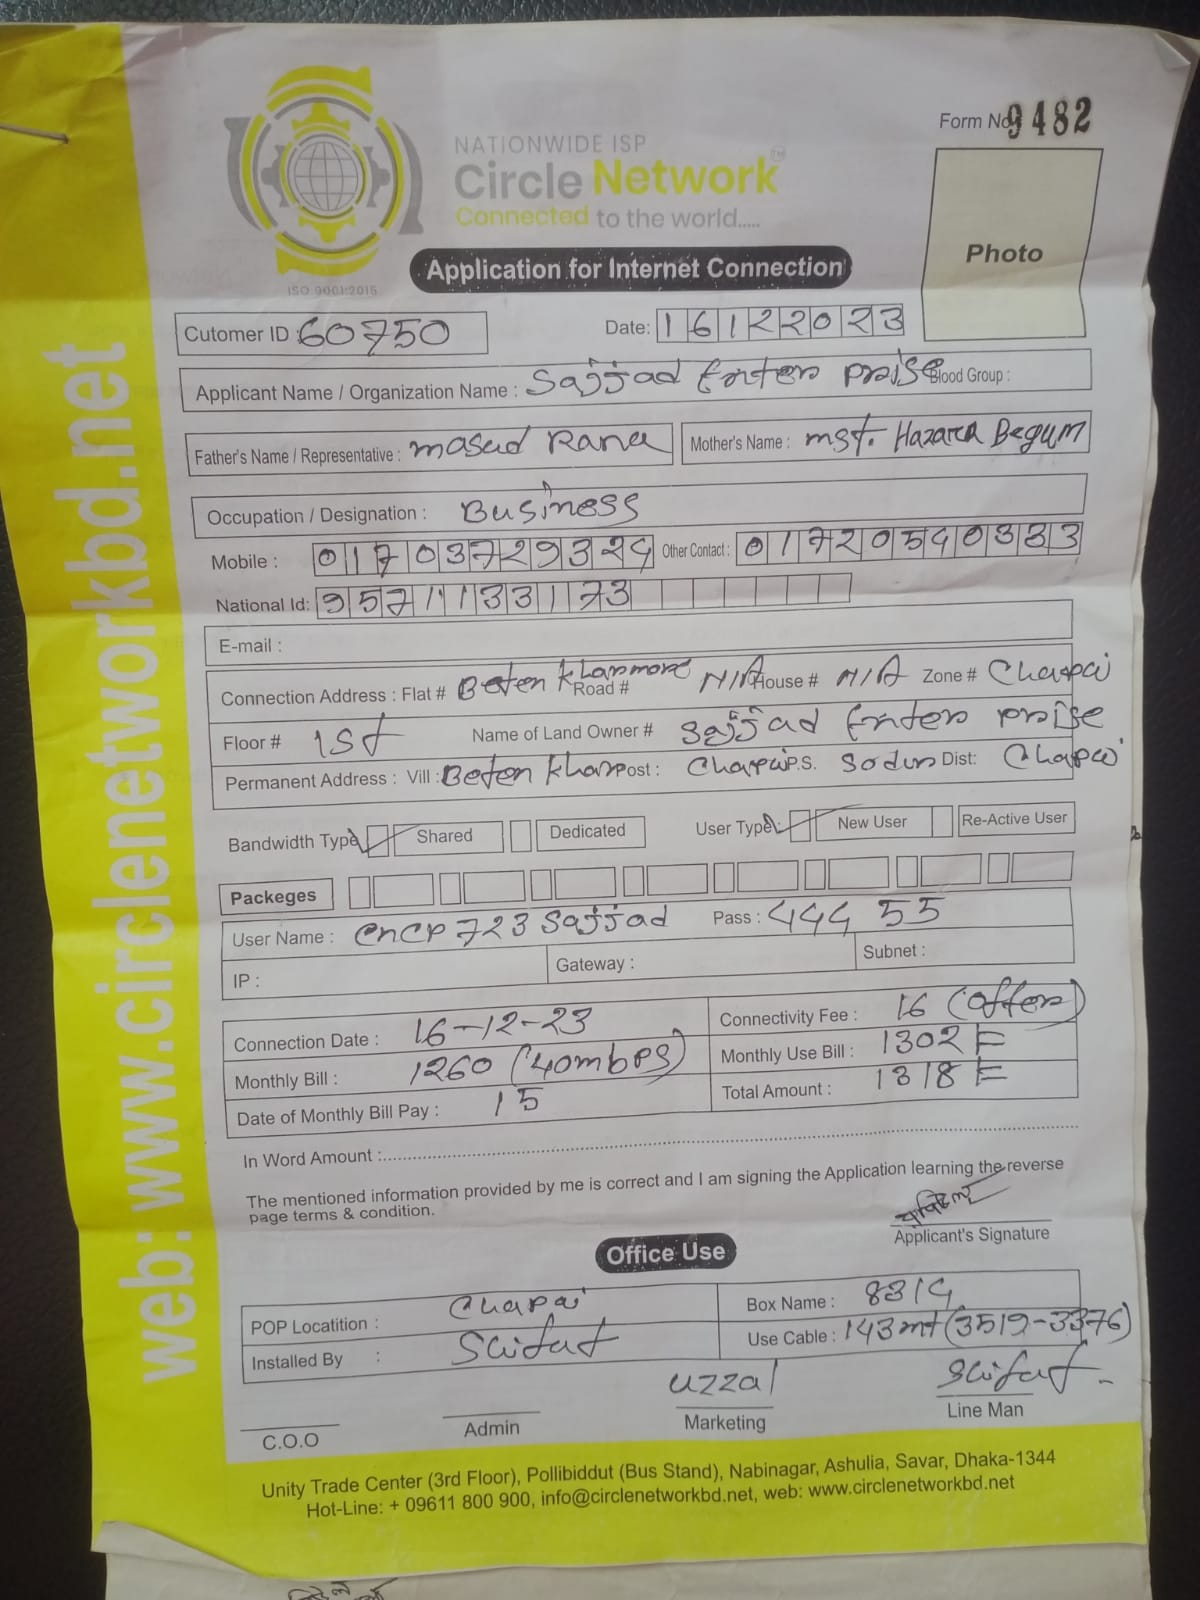 Form No 9482
NATIONWIDE ISP
Circle Network™
Connected to the world.....
ISO 9001:2015
Photo
Application for Internet Connection
Cutomer ID : 60750 Date: 16122023
Applicant Name / Organization Name : Sajjad Enter prise Blood Group :
Father's Name / Representative : masud Rana Mother's Name : mst. Hazara Begum
Occupation / Designation : Business
Mobile : 01703729324 Other Contact : 01720540333
National Id: 9571133173
E-mail :
Connection Address : Flat # Beten Khanmore Road # N/A House # N/A Zone # Chapai
Floor # 1st Name of Land Owner # Sajjad Enter prise
Permanent Address : Vill : Beten Khan Post : Chapai P.S. Sodur Dist: Chapai
Bandwidth Type: Shared Dedicated User Type: New User Re-Active User
Packeges
User Name : CNCP723Sajjad Pass : 44455
IP : Gateway : Subnet :
Connection Date : 16-12-23 Connectivity Fee : 16 (offer)
Monthly Bill : 1260 (40mbps) Monthly Use Bill : 1302
Date of Monthly Bill Pay : 15 Total Amount : 1318
In Word Amount :
The mentioned information provided by me is correct and I am signing the Application learning the reverse
page terms & condition.
Applicant's Signature
Office Use
POP Locatition : Chapai Box Name : 8314
Installed By : Saifut Use Cable : 143mt (3519-3376)
uzzal Saifut
C.O.O Admin Marketing Line Man
Unity Trade Center (3rd Floor), Pollibiddut (Bus Stand), Nabinagar, Ashulia, Savar, Dhaka-1344
Hot-Line: + 09611 800 900, info@circlenetworkbd.net, web: www.circlenetworkbd.net
web: www.circlenetworkbd.net